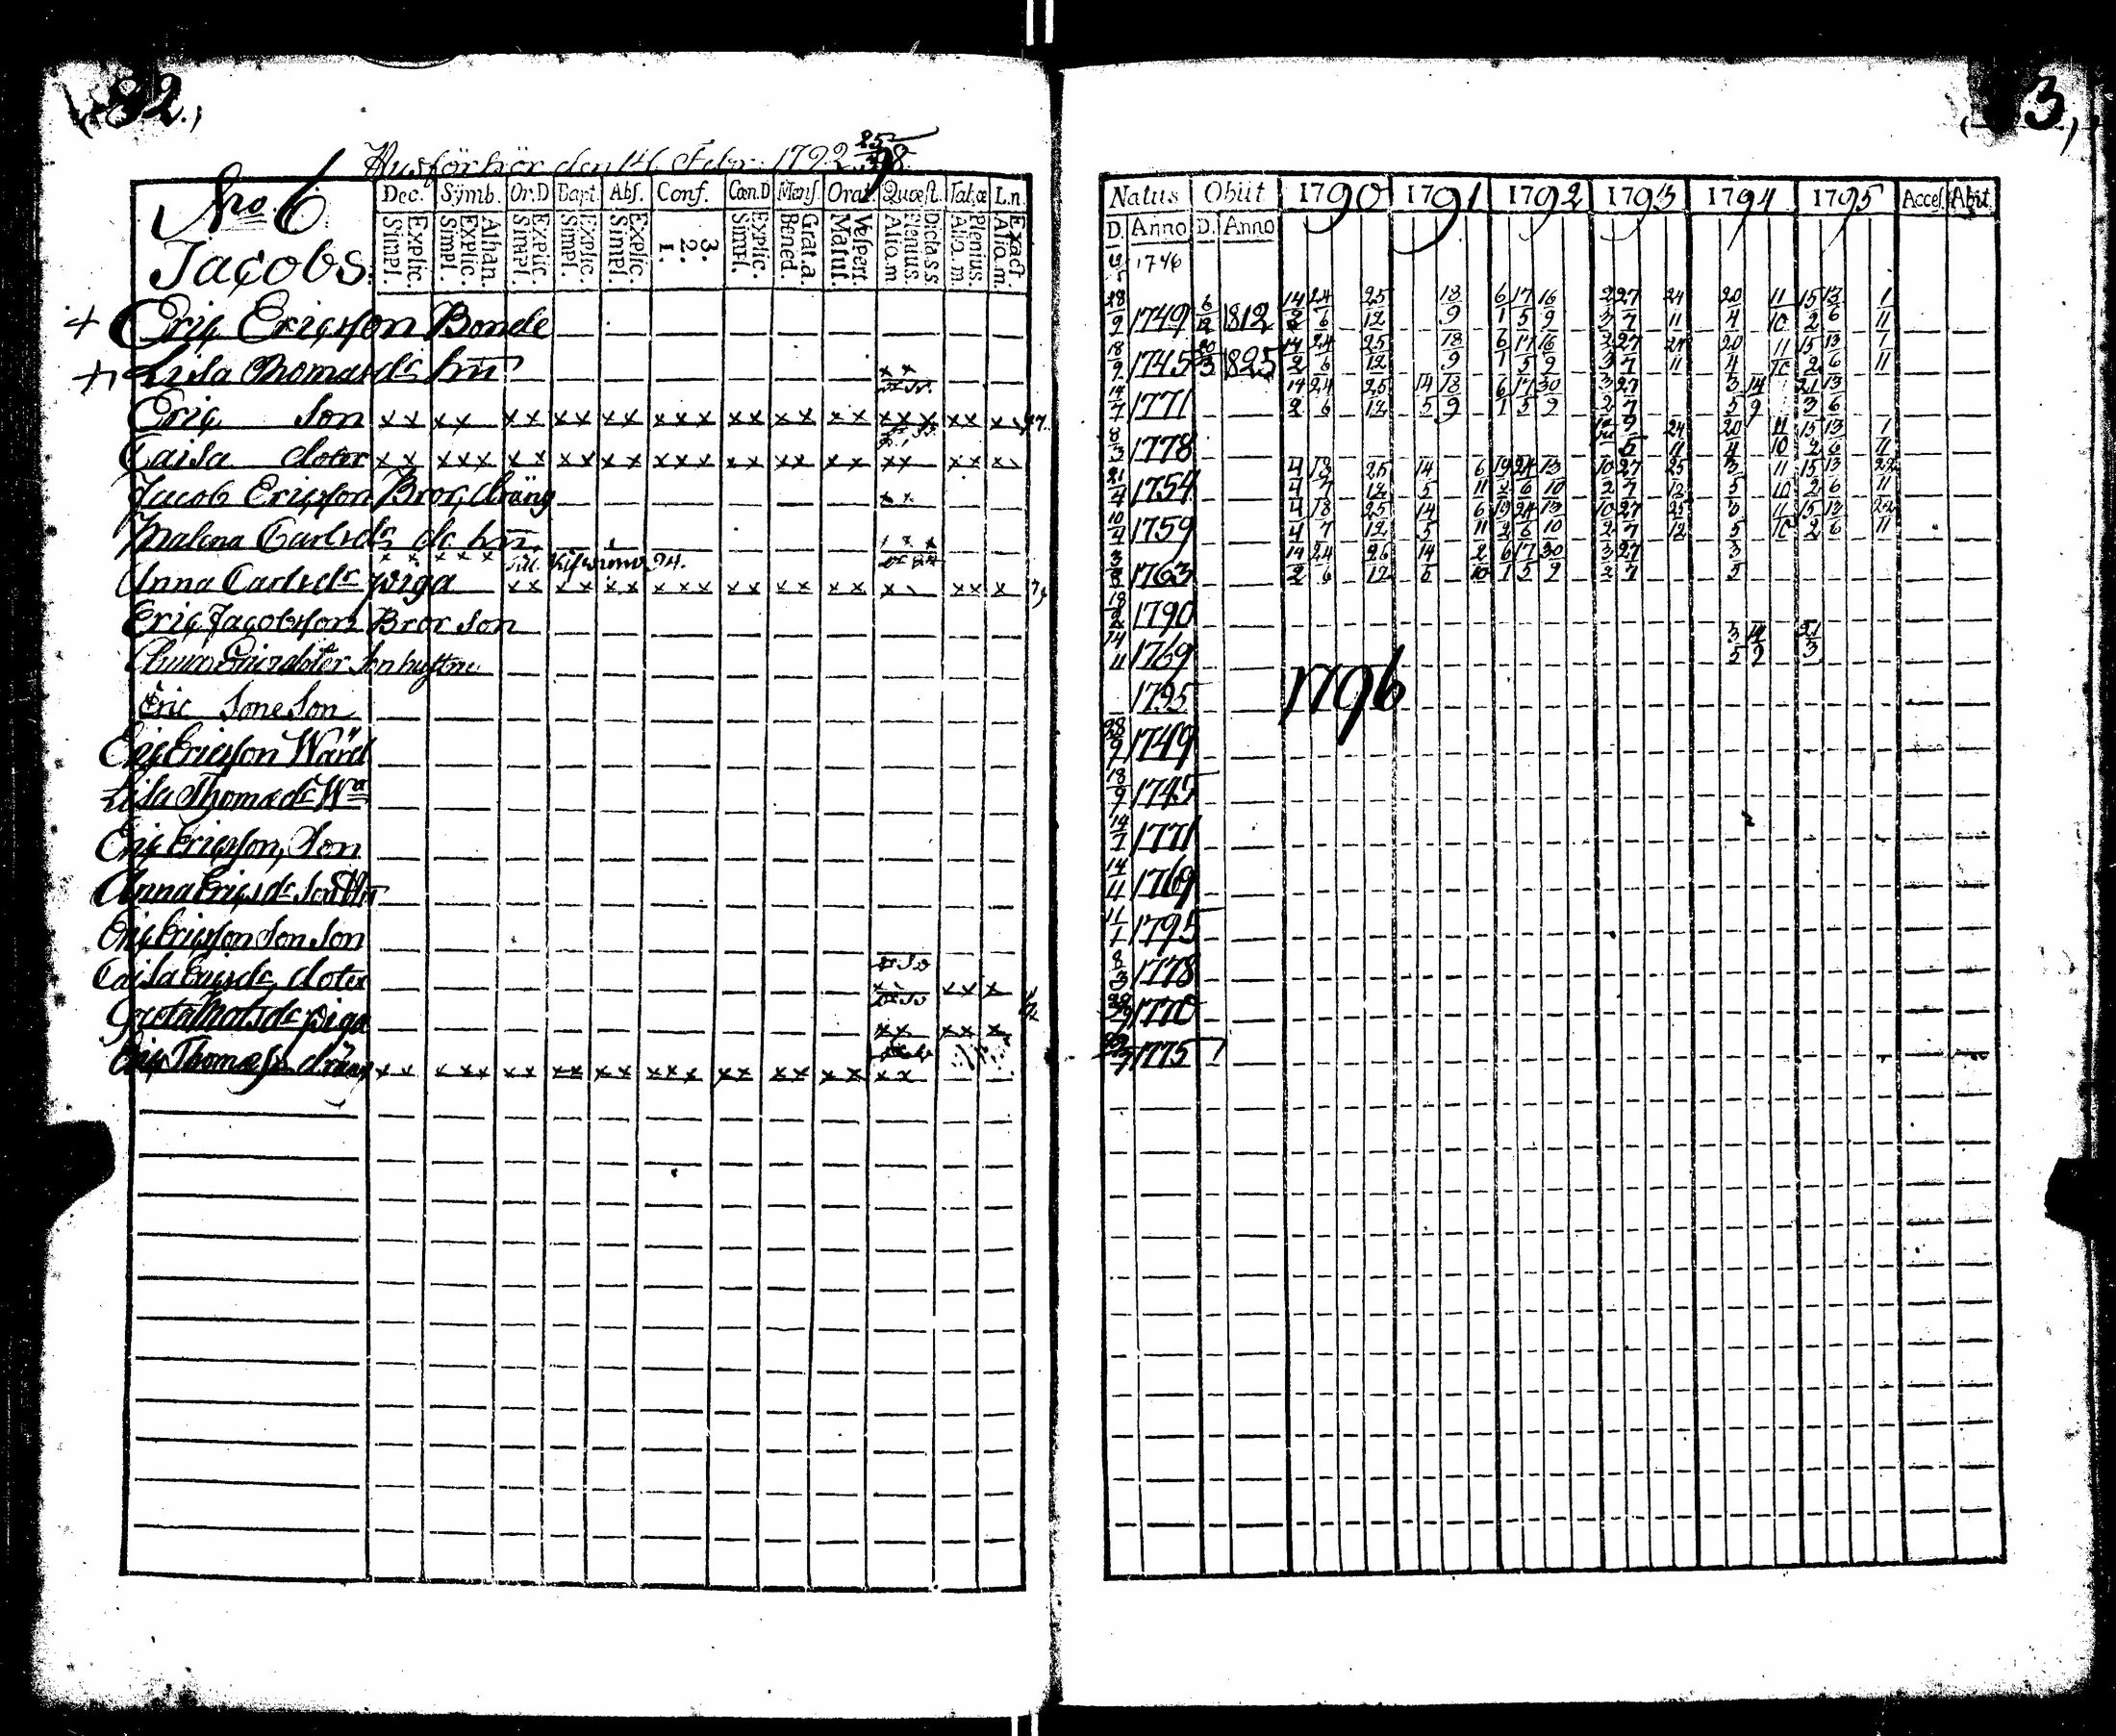 82.
Husförhör den 14 Febr. 1792 25/3 98
No. 6
Jacobs.
Dec. Symb. Or.D Bapt. Abs. Conf. Cœn.D Mens. Orat. Quæst. Tab.œ L.n.
Explic. Simpl. Athan. Explic. Simpl. Explic. Simpl. Explic. Simpl. Explic. Simpl. 3. 2. 1. Explic. Simpl. Grat. a. Bened. Vespert. Matut. Dicta s.s. Plenius. Aliq. m. Plenius. Aliq. m. Exact. Aliq. m.
+ Eric Ericsson Bonde
+ Lisa Thomasdr hu
Eric son x x x x x x x x x x x x x x x x x x x x x x x x
Caisa doter x x x x x x x x x x x x x x x x x x x x x x x x
Jacob Ericsson Bror, dräng x x
Malena Carlsdr do hu
Anna Carlsdr piga
Eric Jacobsson Bror son
Anna Ericsdoter Son hustru
Eric Sone Son
Eric Ericsson Wärd
Lisa Thomædr Wa
Eric Ericsson, Son
Anna Ericsdr Son Hu
Eric Ericsson Son Son
Caisa Ericsdr doter x x x
Greta Matsdr piga x x x x x
Eric Thomæss. dräng x x x x x x x x x x x x x x x x x x x x x
3
Natus Obiit 1790 1791 1792 1793 1794 1795 Access. Abiit
D. Anno D. Anno
1746
28/9 1749 6/12 1812 14/2 24/6 25/12 18/9 6/1 17/5 16/9 3/3 27/7 24/11 20/4 11/10 15/2 13/6 1/11
18/9 1745 20/3 1825 14/2 24/6 25/12 18/9 6/1 17/5 16/9 27/7 24/11 20/4 11/10 15/2 13/6 1/11
14/7 1771 14/2 24/6 25/12 14/5 18/9 6/1 17/5 30/9 3/2 27/7 3/5 14/9 21/3 13/6
8/3 1778 9/5 24/11 20/4 11/10 15/2 13/6 1/11
21/4 1754 4/4 18/7 25/12 14/5 6/11 19/2 24/6 13/10 10/2 27/7 25/12 3/5 11/10 15/2 13/6 22/11
10/4 1759 4/4 18/7 25/12 14/5 6/11 19/2 24/6 13/10 10/2 27/7 25/12 3/5 11/10 15/2 13/6 22/11
3/8 1763 14/2 24/6 26/12 14/5 2/10 6/1 17/5 30/9 3/2 27/7 3/5
18/2 1790
14/11 1769 3/5 14/9 21/3
1795 1796
28/9 1749
18/9 1745
14/7 1771
14/11 1769
11/1 1795
8/3 1778
1770
1775